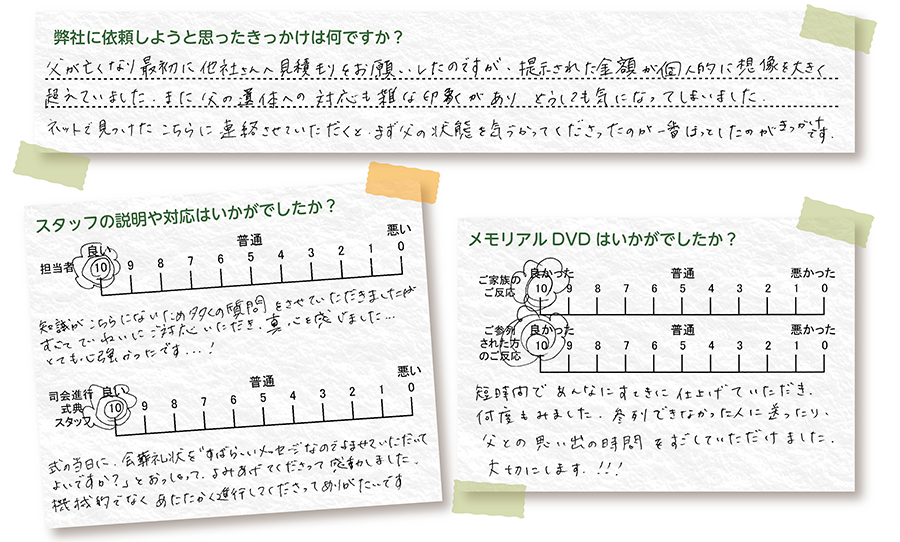 弊社に依頼しようと思ったきっかけは何ですか？
父が亡くなり最初に他社さんへ見積もりをお願いしたのですが、提示された金額が個人的に想像を大きく
超えていました。また父の遺体への対応も雑な印象があり どうしても気になってしまいました。
ネットで見つけたこちらに連絡させていただくと、まず父の状態を気づかってくださったのが一番ほっとしたのがきっかけです。
スタッフの説明や対応はいかがでしたか？
担当者
良い 普通 悪い
10 9 8 7 6 5 4 3 2 1 0
知識がこちらにないため多くの質問をさせていただきましたが
すべてていねいにご対応いただき、真心を感じました…
とても心強かったです…！
司会進行
式典
スタッフ
良い 普通 悪い
10 9 8 7 6 5 4 3 2 1 0
式の当日に、会葬礼状を"すばらしいメッセージなのでよませていただいて
よいですか？"とおっしゃって、よみあげてくださって感動しました。
機械的でなく あたたかく進行してくださってありがたいです
メモリアルDVDはいかがでしたか？
ご家族の
ご反応
良かった 普通 悪かった
10 9 8 7 6 5 4 3 2 1 0
ご参列
された方
のご反応
良かった 普通 悪かった
10 9 8 7 6 5 4 3 2 1 0
短時間で あんなにすてきに仕上げていただき、
何度もみました。参列できなかった人に送ったり、
父との思い出の時間をすごしていただけました。
大切にします。！！！